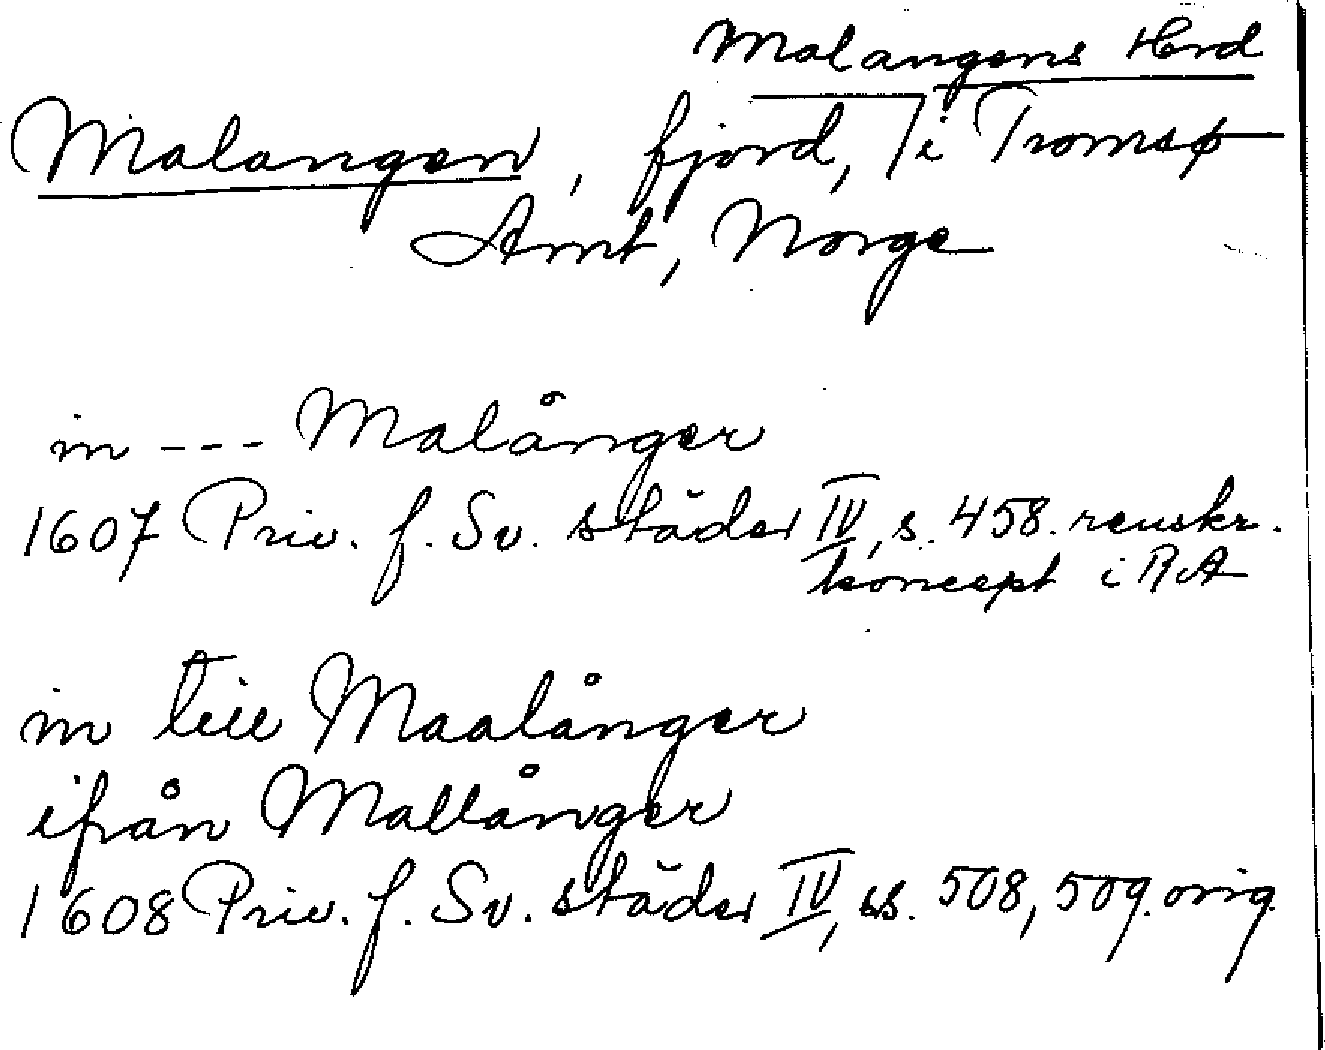 Malangens Hrd
Malangen, fjord, i Tromsø
Amt, Norge
in --- Malånger
1607 Priv. f. Sv. städer IV, s. 458. renskr.
koncept i RA
in till Maalånger
ifrån Mallånger
1608 Priv. f. Sv. städer IV, ss. 508, 509. orig.